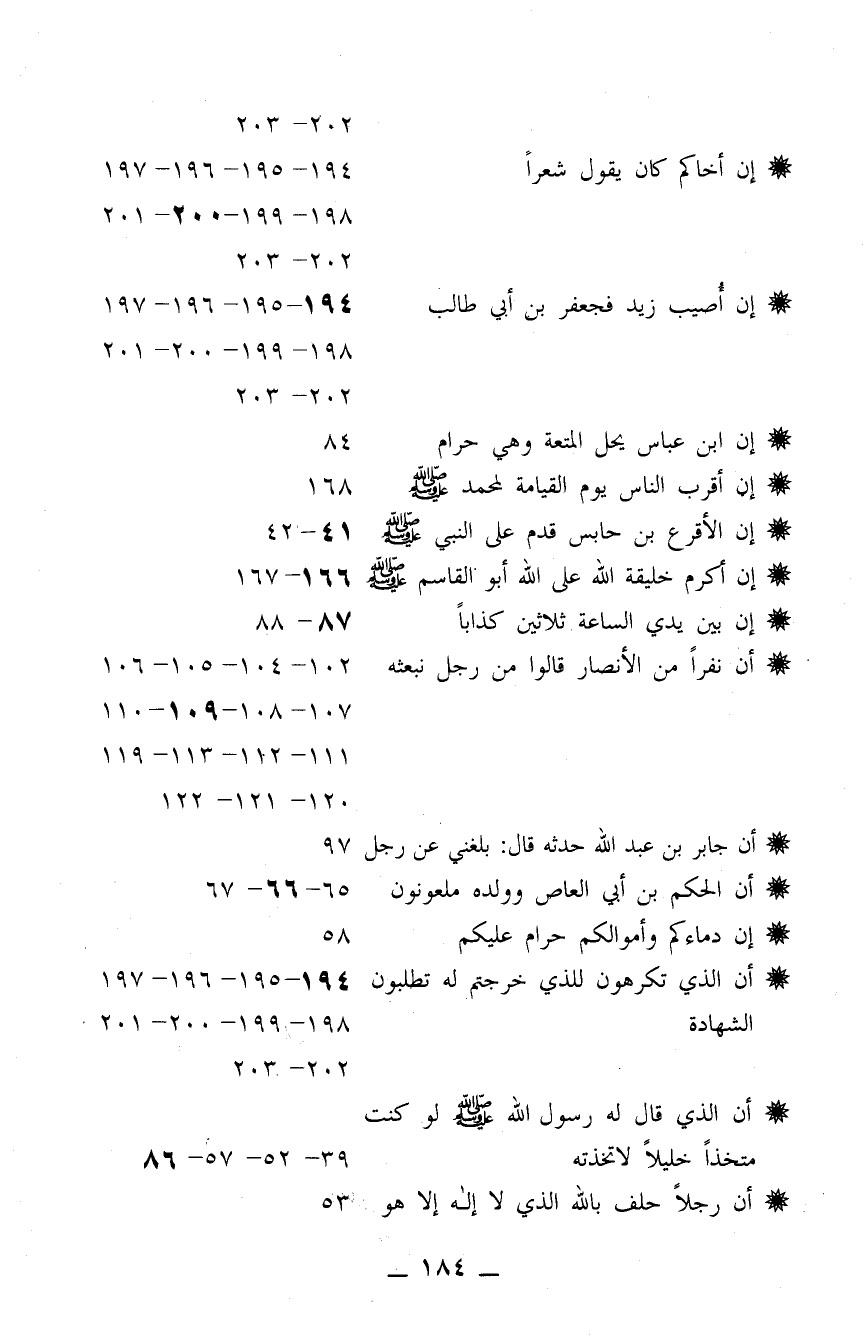 ٢٠٢– ٢٠٣
✷ إن أخاكم كان يقول شعراً ١٩٤– ١٩٥– ١٩٦– ١٩٧
١٩٨– ١٩٩–٢٠٠– ٢٠١
٢٠٢– ٢٠٣
✷ إن أُصيب زيد فجعفر بن أبي طالب ١٩٤–١٩٥– ١٩٦– ١٩٧
١٩٨– ١٩٩– ٢٠٠– ٢٠١
٢٠٢– ٢٠٣
✷ إن ابن عباس يحل المتعة وهي حرام ٨٤
✷ إن أقرب الناس يوم القيامة لمحمد ﷺ ١٦٨
✷ إن الأقرع بن حابس قدم على النبي ﷺ ٤١–٤٢
✷ إن أكرم خليقة الله على الله أبو القاسم ﷺ ١٦٦–١٦٧
✷ إن بين يدي الساعة ثلاثين كذاباً ٨٧– ٨٨
✷ أن نفراً من الأنصار قالوا من رجل نبعثه ١٠٢– ١٠٤– ١٠٥– ١٠٦
١٠٧– ١٠٨–١٠٩–١١٠
١١١– ١١٢– ١١٣– ١١٩
١٢٠– ١٢١– ١٢٢
✷ أن جابر بن عبد الله حدثه قال: بلغني عن رجل ٩٧
✷ أن الحكم بن أبي العاص وولده ملعونون ٦٥–٦٦– ٦٧
✷ إن دماءكم وأموالكم حرام عليكم ٥٨
✷ أن الذي تكرهون للذي خرجتم له تطلبون ١٩٤–١٩٥– ١٩٦– ١٩٧
الشهادة ١٩٨– ١٩٩– ٢٠٠– ٢٠١
٢٠٢– ٢٠٣
✷ أن الذي قال له رسول الله ﷺ لو كنت
متخذاً خليلاً لاتخذته ٣٩– ٥٢– ٥٧– ٨٦
✷ أن رجلاً حلف بالله الذي لا إلـٰه إلا هو ٥٣
ـ ١٨٤ ـ